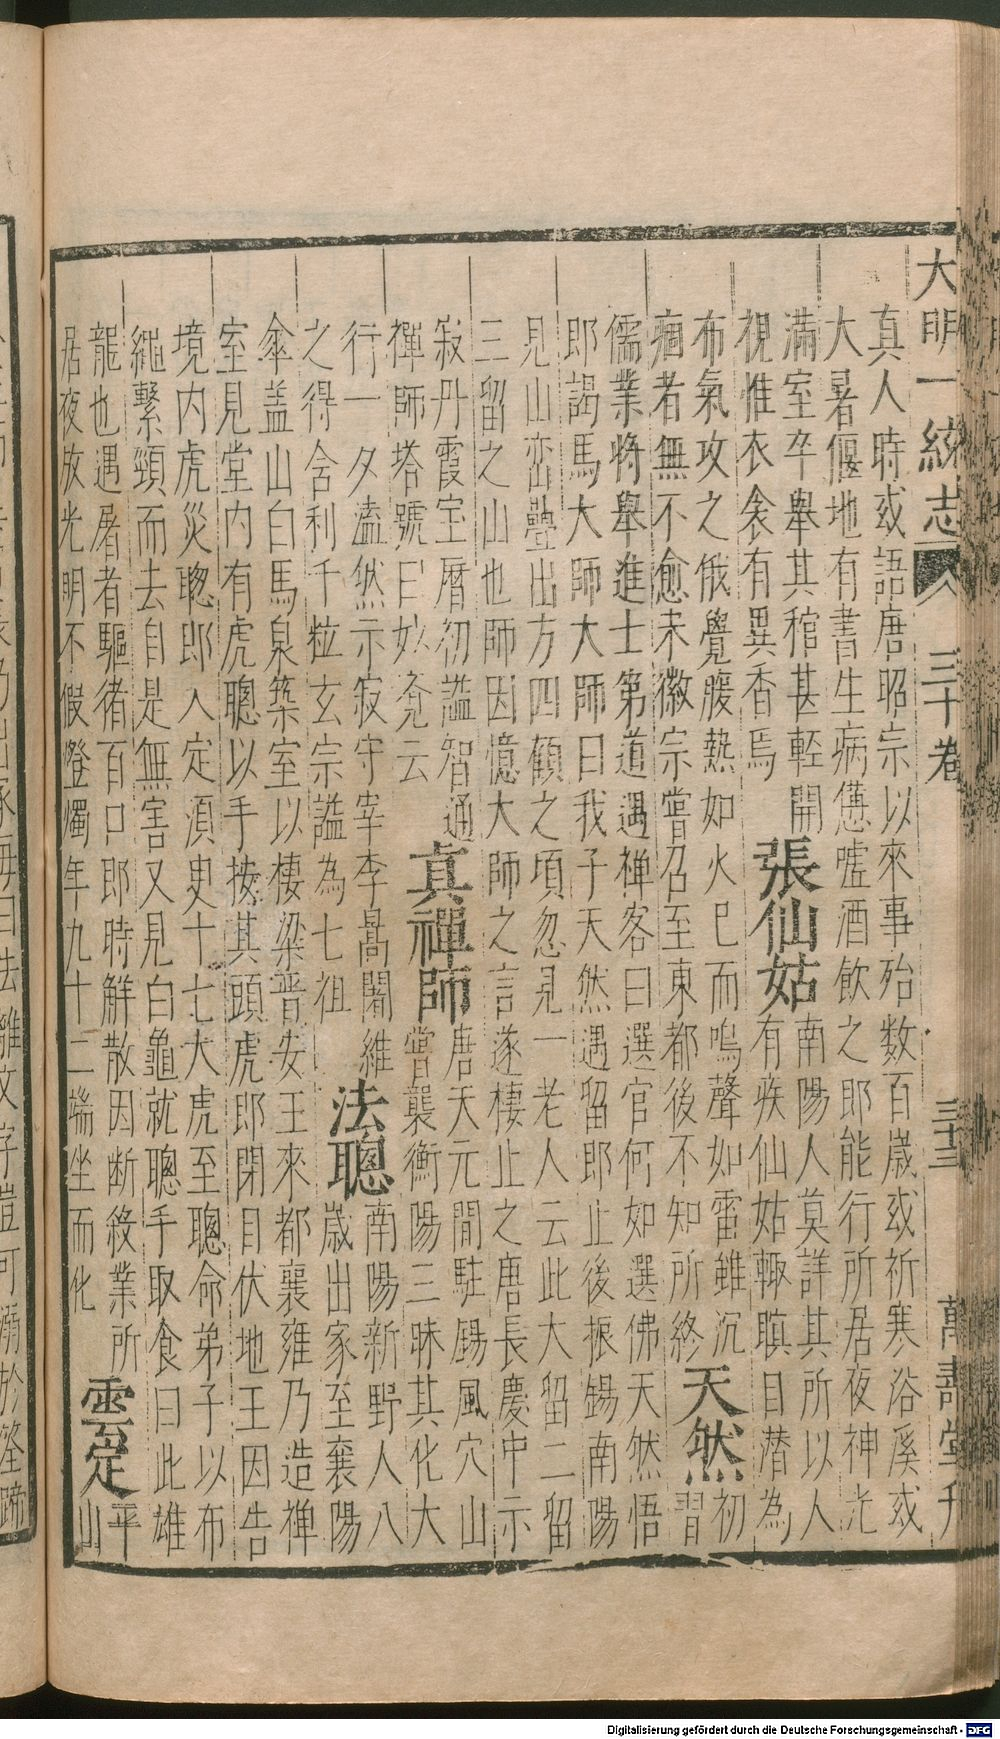 大明一統志 三十卷 三十三 萬壽堂刊
真人時或語唐昭宗以來事殆數百歲或祈寒浴溪或
大暑偃地有書生病憊噓酒飲之即能行所居夜神光
滿室卒舉其棺甚輕開
視惟衣衾有異香焉
張仙姑
南陽人莫詳其所以人
有疾仙姑輒瞑目潛為
布氣攻之俄覺腹熱如火已而鳴聲如雷雖沉
痼者無不愈宋徽宗嘗召至東都後不知所終
天然
初
習
儒業將舉進士第道遇禅客曰選官何如選佛天然悟
郎謁馬大師大師曰我子天然遇留郎止後振錫南陽
見山巒疊出方四顧之頃忽見一老人云此大留二留
三留之山也師因憶大師之言遂棲止之唐長慶中示
寂丹霞宝曆初謚智通
禪師塔號曰妙覺云
真禪師
唐天元間駐錫風穴山
嘗襲衡陽三昧其化大
行一夕溘然示寂守宰李暠闍維
之得舍利千粒玄宗謚為七祖
法聰
南陽新野人八
歲出家至襄陽
傘盖山白馬泉築室以棲梁晋安王來都襄雍乃造禅
室見堂内有虎聰以手按其頭虎郎閉目伏地王因告
境内虎災聰郎入定湏臾十七大虎至聰命弟子以布
繩繫頸而去自是無害又見白龜就聰手取食曰此雄
龍也遇屠者驅猪百口郎時觧散因断殺業所
居夜放光明不假燈燭年九十二端坐而化
雲定
平
山
Digitalisierung gefördert durch die Deutsche Forschungsgemeinschaft - DFG